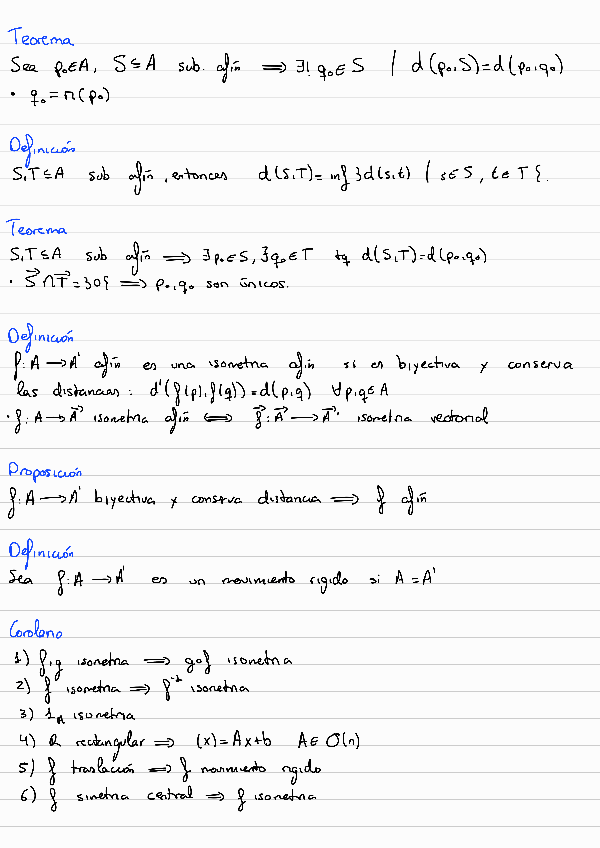 Teorema
Sea p₀∈A, S⊆A sub. afín ⟹ ∃! q₀∈S / d(p₀,S)=d(p₀,q₀)
· q₀=π(p₀)
Definición
S,T⊆A sub afín, entonces d(S,T)= inf {d(s,t) / s∈S, t∈T}.
Teorema
S,T⊆A sub afín ⟹ ∃p₀∈S, ∃q₀∈T tq d(S,T)=d(p₀,q₀)
· S⃗∩T⃗={0} ⟹ p₀,q₀ son únicos.
Definición
f:A→A' afín es una isometría afín si es biyectiva y conserva
las distancias: d'(f(p),f(q))=d(p,q) ∀p,q∈A
· f:A→A' isometría afín ⟺ f⃗:A⃗→A⃗' isometría vectorial
Proposición
f:A→A' biyectiva y conserva distancia ⟹ f afín
Definición
Sea f:A→A' es un movimiento rígido si A=A'
Corolario
1) f,g isometría ⟹ g∘f isometría
2) f isometría ⟹ f⁻¹ isometría
3) 1_A isometría
4) R rectangular ⟹ (x)=Ax+b A∈O(n)
5) f traslación ⟹ f movimiento rígido
6) f simetría central ⟹ f isometría